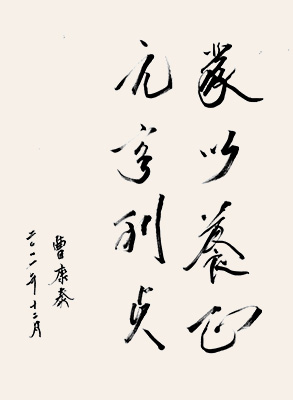 蒙以養正
元亨利贞
曹康泰
二〇一一年十二月